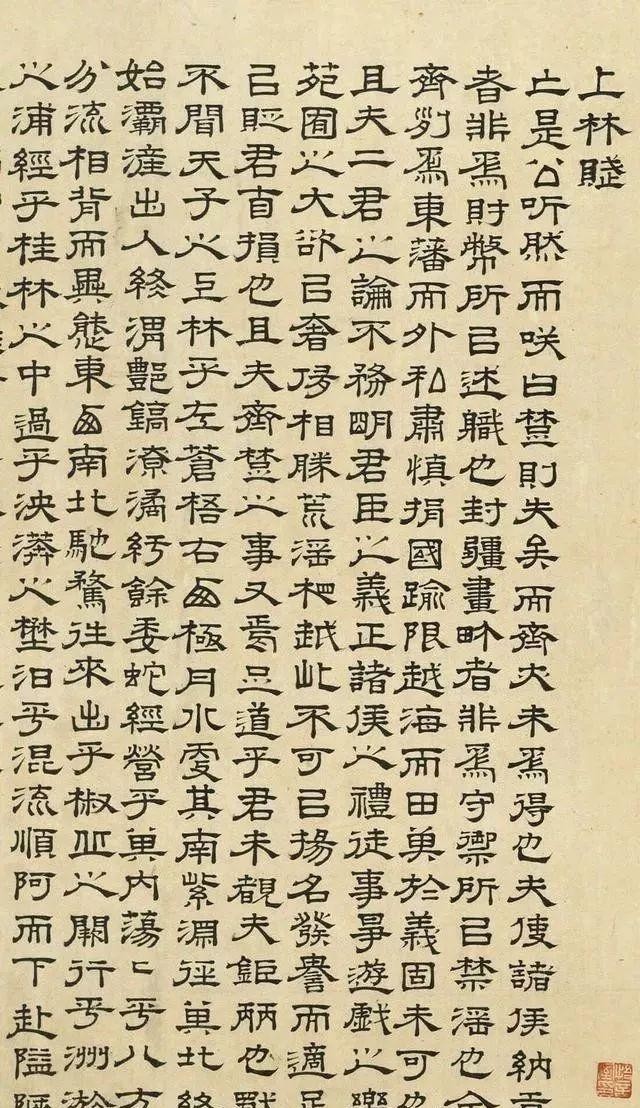 上林賦
亡是公听然而咲曰楚則失矣而齊亦未為得也夫使諸侯納貢
者非為財幣所以述職也封疆畫畍者非為守禦所以禁淫也今
齊列為東藩而外私肅慎捐國踰限越海而田其於義固未可也
且夫二君之論不務明君臣之義正諸侯之禮徒事爭遊戲之樂
苑囿之大欲以奢侈相勝荒淫相越此不可以揚名發譽而適足
以貶君自損也且夫齊楚之事又焉足道乎君未覩夫鉅麗也獨
不聞天子之上林乎左蒼梧右西極丹水更其南紫淵徑其北終
始灞滻出入涇渭酆鎬潦潏紆餘委蛇經營乎其內蕩〻乎八
分流相背而異態東西南北馳騖往來出乎椒丘之闕行乎洲淤
之浦經乎桂林之中過乎泱漭之壄汩乎混流順阿而下赴隘陿